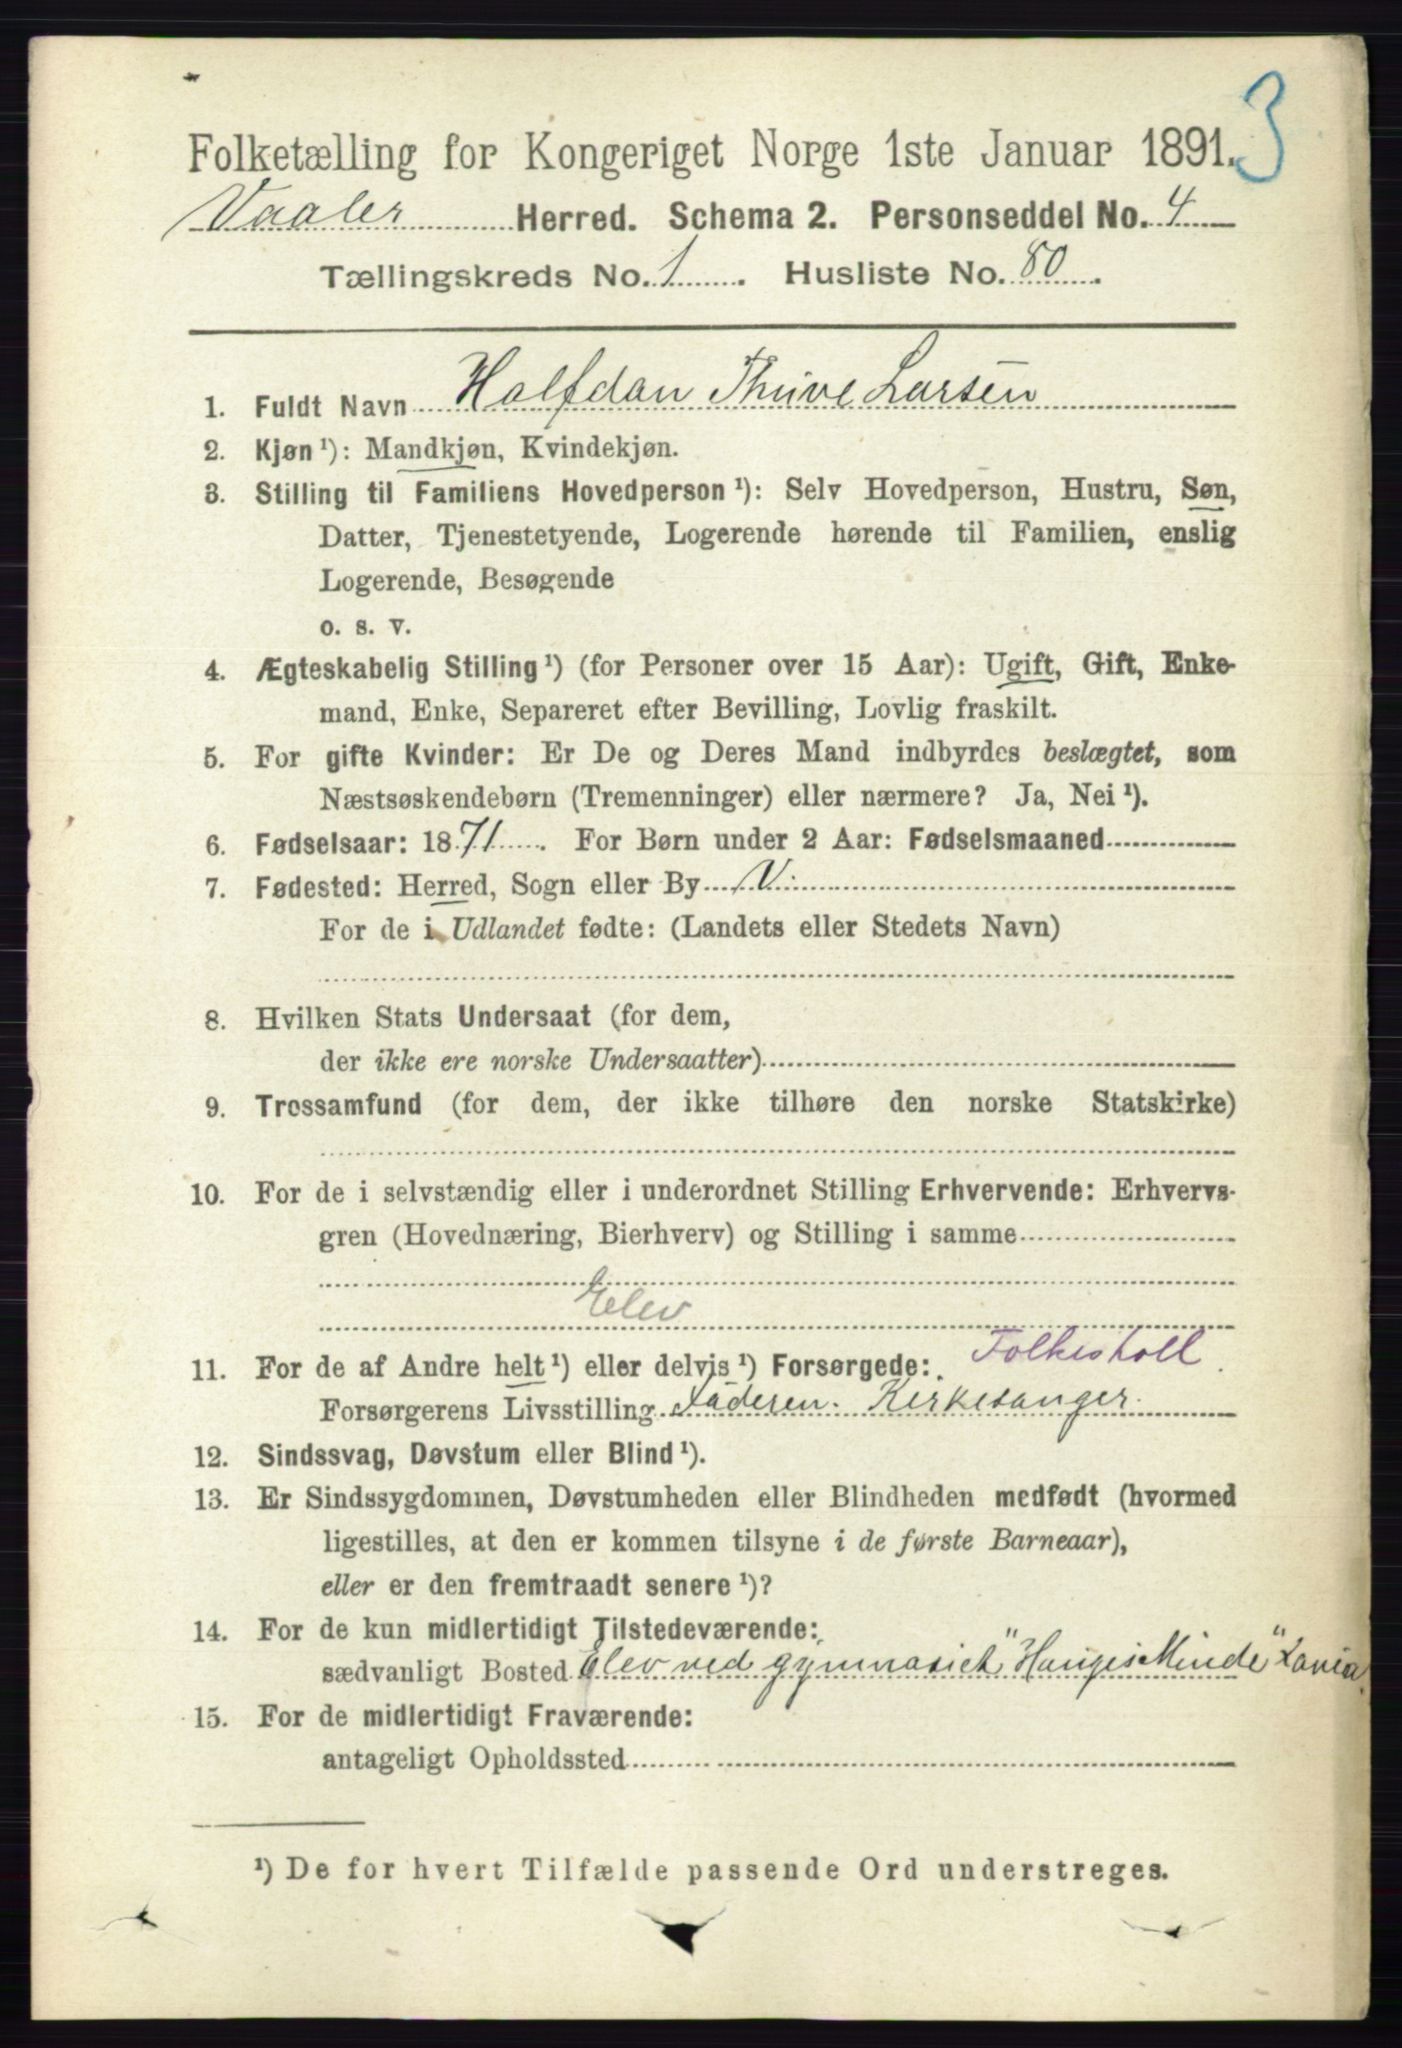 3
Folketælling for Kongeriget Norge 1ste Januar 1891.
Vaaler Herred. Schema 2. Personseddel No. 4
Tællingskreds No. 1. Husliste No. 80.
1. Fuldt Navn Halfdan Thüve Larsen
2. Kjøn ¹): Mandkjøn, Kvindekjøn.
3. Stilling til Familiens Hovedperson ¹): Selv Hovedperson, Hustru, Søn,
Datter, Tjenestetyende, Logerende hørende til Familien, enslig
Logerende, Besøgende
o. s. v.
4. Ægteskabelig Stilling ¹) (for Personer over 15 Aar): Ugift, Gift, Enke-
mand, Enke, Separeret efter Bevilling, Lovlig fraskilt.
5. For gifte Kvinder: Er De og Deres Mand indbyrdes beslægtet, som
Næstsøskendebørn (Tremenninger) eller nærmere? Ja, Nei ¹).
6. Fødselsaar: 1871. For Børn under 2 Aar: Fødselsmaaned
7. Fødested: Herred, Sogn eller By V.
For de i Udlandet fødte: (Landets eller Stedets Navn)
8. Hvilken Stats Undersaat (for dem,
der ikke ere norske Undersaatter)
9. Trossamfund (for dem, der ikke tilhøre den norske Statskirke)
10. For de i selvstændig eller i underordnet Stilling Erhvervende: Erhvervs-
gren (Hovednæring, Bierhverv) og Stilling i samme
Elev
11. For de af Andre helt ¹) eller delvis ¹) Forsørgede: Folkeskoll.
Forsørgerens Livsstilling Faderen. Kirkesanger.
12. Sindssvag, Døvstum eller Blind ¹).
13. Er Sindssygdommen, Døvstumheden eller Blindheden medfødt (hvormed
ligestilles, at den er kommen tilsyne i de første Barneaar),
eller er den fremtraadt senere ¹)?
14. For de kun midlertidigt Tilstedeværende:
sædvanligt Bosted Elev ved gymnasiet "Hauges Minde" Xania.
15. For de midlertidigt Fraværende:
antageligt Opholdssted
¹) De for hvert Tilfælde passende Ord understreges.